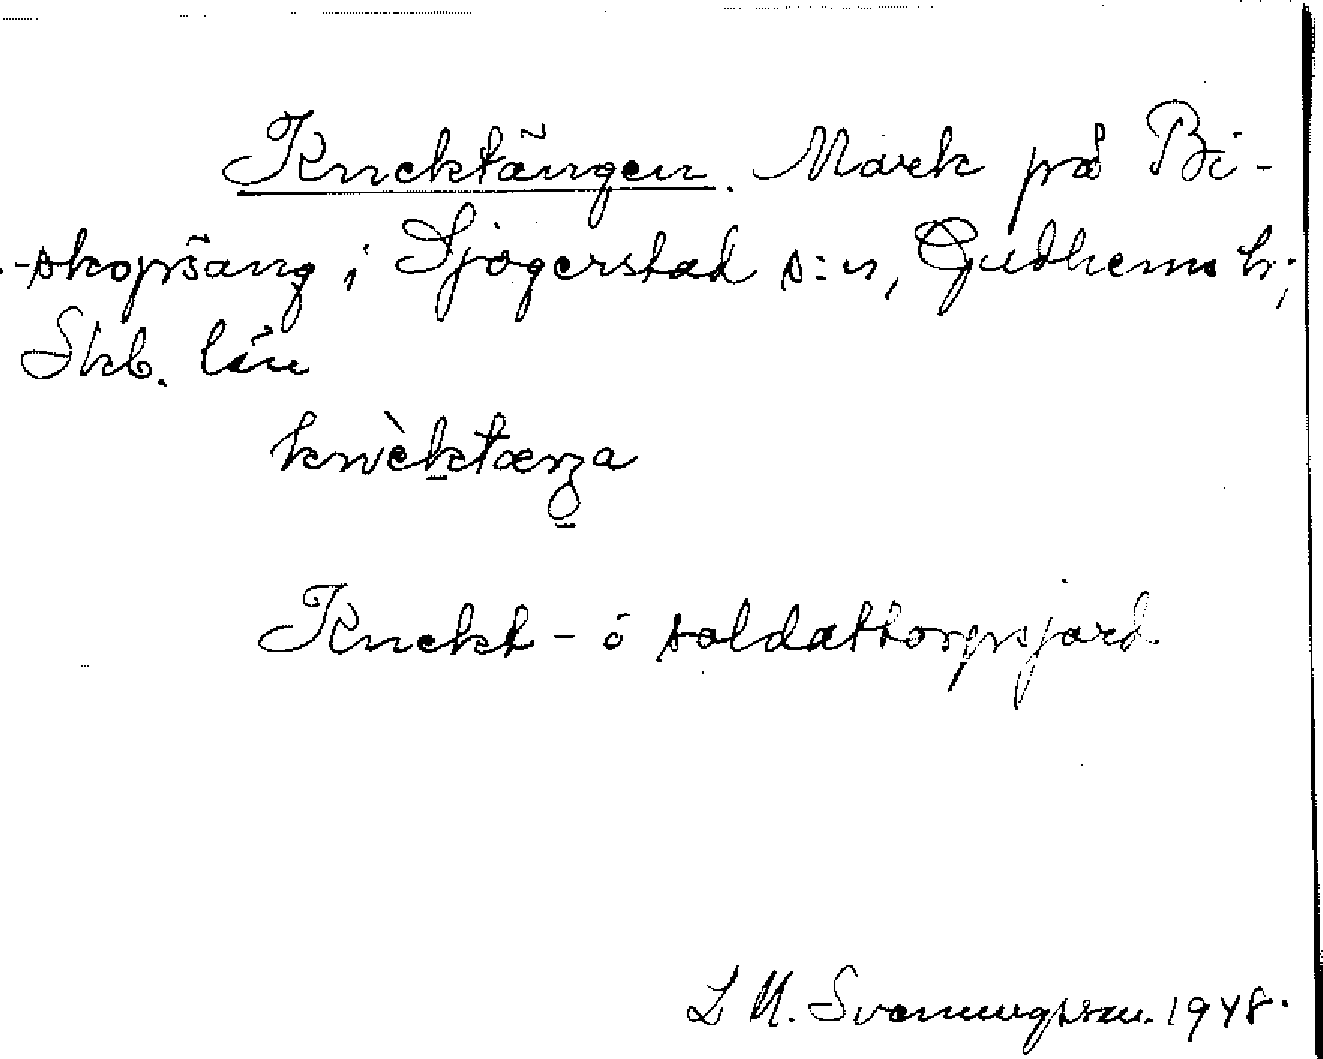 Knektängen. Mark på Bi-
-skopsäng i Sjögerstad s:n, Gudhems h;
Skb. län
knèktæŋa
Knekt- ö soldattorpsjord
L M. Svenungsson. 1948.